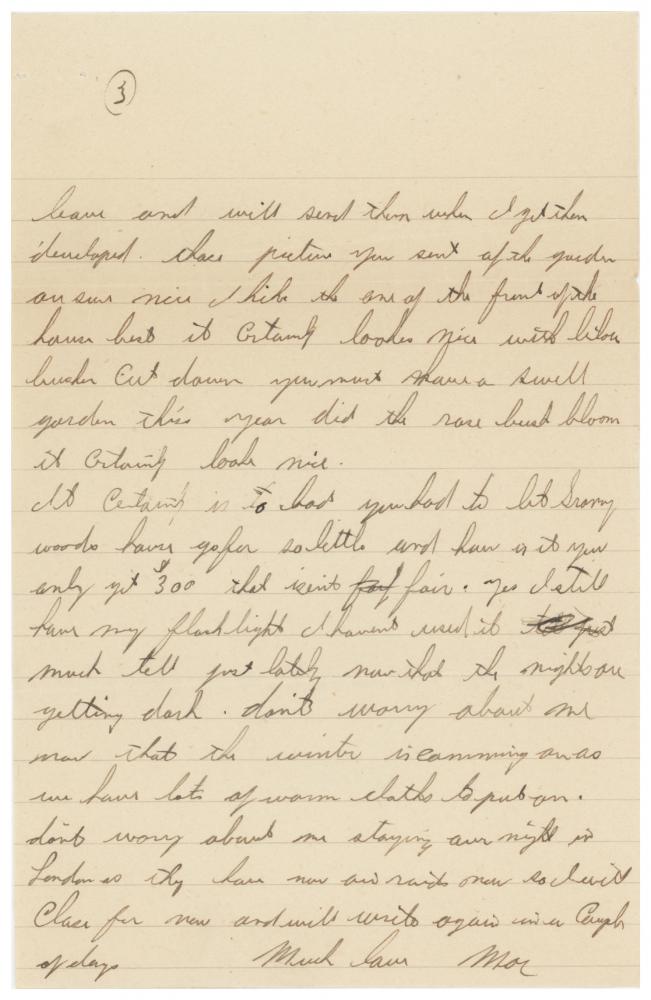 3
leave and will send them when I get them
developed. those picture you sent of the garden
are sure nice I like the one of the front of the
house best it certainly lookes nice with lilac
bushes cut down you must have a swell
garden this year did the rose bush bloom
it certainly looks nice.
It certainly is to bad you had to let Granny
woods house go for so little and how is it you
only get $300 that isent fair. yes I still
have my flashlight I havent used it
much tell just lately now that the nights are
getting dark. don't worry about me
now that the winter is comming on as
we have lots of warm cloths to put on.
don't worry about me staying over night in
London as they have now air raids now so I will
Close for now and will write again in a Couple
of days Much love Mac